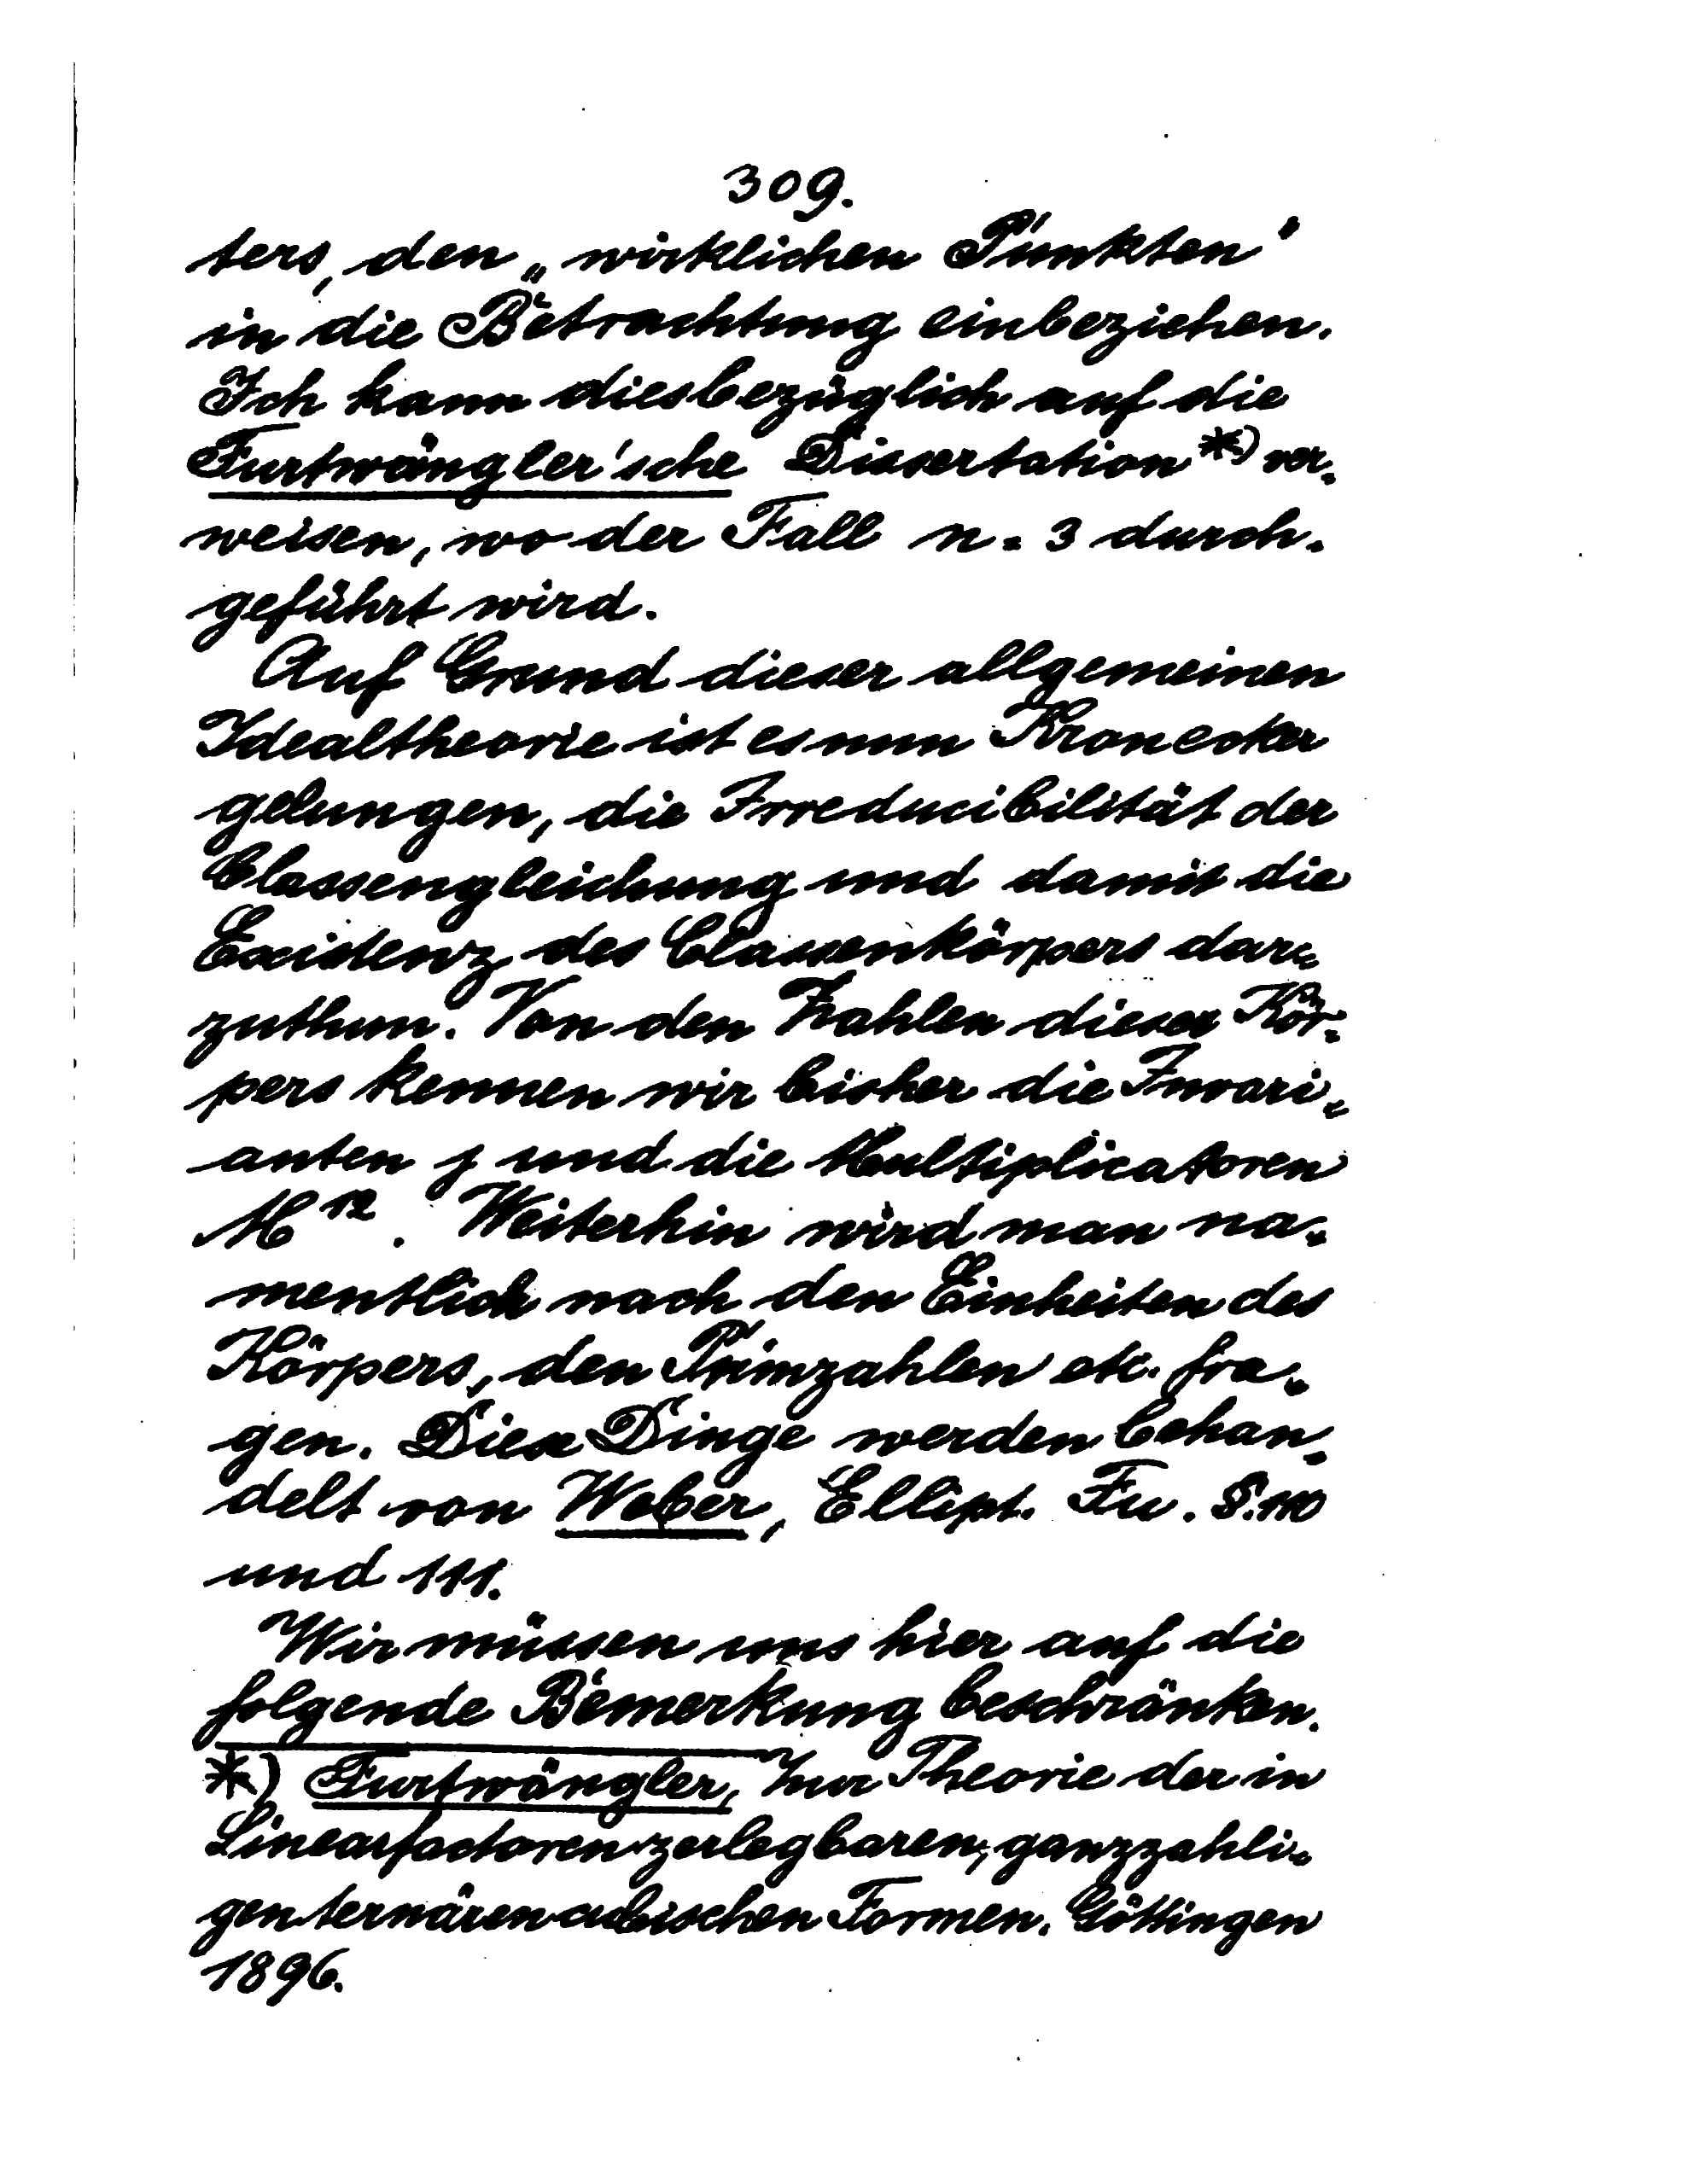 309.
ters, den „wirklichen Punkten"
in die Betrachtung einbeziehen.
Ich kann diesbezüglich auf die
Furtwängler'sche Dissertation *) ver-
weisen, wo der Fall n = 3 durch-
geführt wird.
Auf Grund dieser allgemeinen
Idealtheorie ist es nun Kronecker
gelungen, die Irreducibilität der
Classengleichung und damit die
Existenz des Classenkörpers dar-
zuthun. Von den Zahlen dieses Kör-
pers kennen wir bisher die Invari-
anten j und die Multiplicatoren
M¹². Weiterhin wird man na-
mentlich nach den Einheiten des
Körpers, den Primzahlen etc. fra-
gen. Diese Dinge werden behan-
delt von Weber, Ellipt. Fu. §. 110
und 111.
Wir müssen uns hier auf die
folgende Bemerkung beschränken.
*) Furtwängler, Zur Theorie der in
Linearfactoren zerlegbaren, ganzzahli-
gen ternären cubischen Formen. Göttingen
1896.